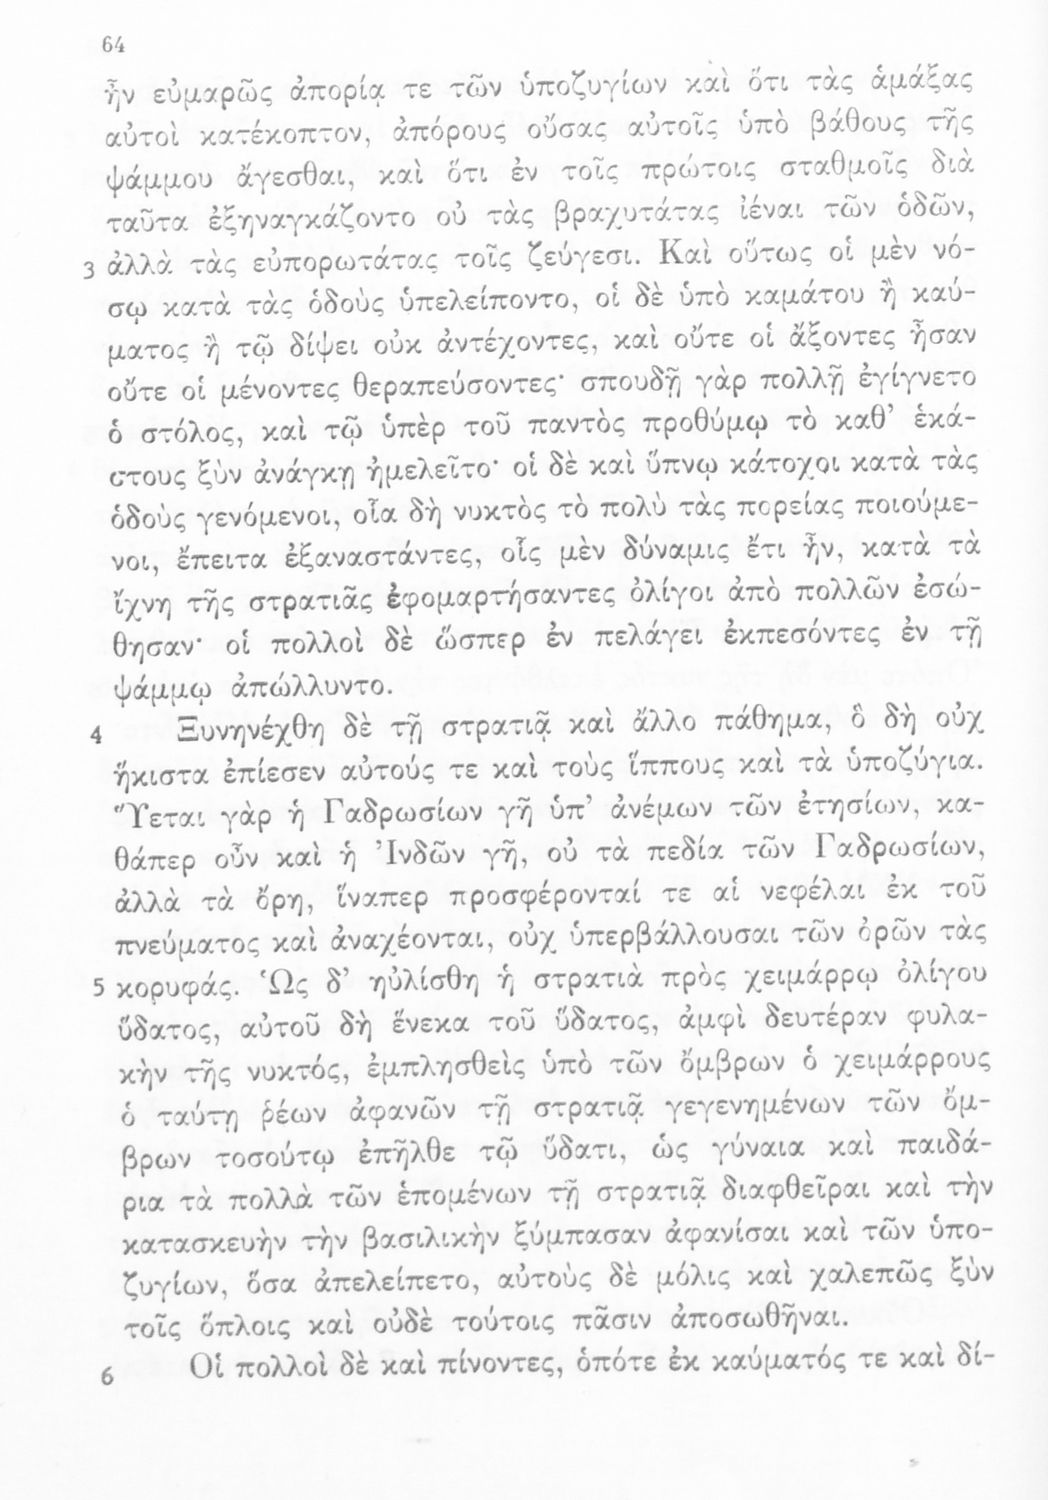 64
ἦν εὐμαρῶς ἀπορίᾳ τε τῶν ὑποζυγίων καὶ ὅτι τὰς ἁμάξας
αὐτοὶ κατέκοπτον, ἀπόρους οὔσας αὐτοῖς ὑπὸ βάθους τῆς
ψάμμου ἄγεσθαι, καὶ ὅτι ἐν τοῖς πρώτοις σταθμοῖς διὰ
ταῦτα ἐξηναγκάζοντο οὐ τὰς βραχυτάτας ἰέναι τῶν ὁδῶν,
3 ἀλλὰ τὰς εὐπορωτάτας τοῖς ζεύγεσι. Καὶ οὕτως οἱ μὲν νό-
σῳ κατὰ τὰς ὁδοὺς ὑπελείποντο, οἱ δὲ ὑπὸ καμάτου ἢ καύ-
ματος ἢ τῷ δίψει οὐκ ἀντέχοντες, καὶ οὔτε οἱ ἄξοντες ἦσαν
οὔτε οἱ μένοντες θεραπεύσοντες· σπουδῇ γὰρ πολλῇ ἐγίγνετο
ὁ στόλος, καὶ τῷ ὑπὲρ τοῦ παντὸς προθύμῳ τὸ καθ’ ἑκά-
στους ξὺν ἀνάγκῃ ἠμελεῖτο· οἱ δὲ καὶ ὕπνῳ κάτοχοι κατὰ τὰς
ὁδοὺς γενόμενοι, οἷα δὴ νυκτὸς τὸ πολὺ τὰς πορείας ποιούμε-
νοι, ἔπειτα ἐξαναστάντες, οἷς μὲν δύναμις ἔτι ἦν, κατὰ τὰ
ἴχνη τῆς στρατιᾶς ἐφομαρτήσαντες ὀλίγοι ἀπὸ πολλῶν ἐσώ-
θησαν· οἱ πολλοὶ δὲ ὥσπερ ἐν πελάγει ἐκπεσόντες ἐν τῇ
ψάμμῳ ἀπώλλυντο.
4 Ξυνηνέχθη δὲ τῇ στρατιᾷ καὶ ἄλλο πάθημα, ὃ δὴ οὐχ
ἥκιστα ἐπίεσεν αὐτούς τε καὶ τοὺς ἵππους καὶ τὰ ὑποζύγια.
Ὕεται γὰρ ἡ Γαδρωσίων γῆ ὑπ’ ἀνέμων τῶν ἐτησίων, κα-
θάπερ οὖν καὶ ἡ Ἰνδῶν γῆ, οὐ τὰ πεδία τῶν Γαδρωσίων,
ἀλλὰ τὰ ὄρη, ἵναπερ προσφέρονταί τε αἱ νεφέλαι ἐκ τοῦ
πνεύματος καὶ ἀναχέονται, οὐχ ὑπερβάλλουσαι τῶν ὀρῶν τὰς
5 κορυφάς. Ὡς δ’ ηὐλίσθη ἡ στρατιὰ πρὸς χειμάρρῳ ὀλίγου
ὕδατος, αὐτοῦ δὴ ἕνεκα τοῦ ὕδατος, ἀμφὶ δευτέραν φυλα-
κὴν τῆς νυκτός, ἐμπλησθεὶς ὑπὸ τῶν ὄμβρων ὁ χειμάρρους
ὁ ταύτῃ ῥέων ἀφανῶν τῇ στρατιᾷ γεγενημένων τῶν ὄμ-
βρων τοσούτῳ ἐπῆλθε τῷ ὕδατι, ὡς γύναια καὶ παιδά-
ρια τὰ πολλὰ τῶν ἑπομένων τῇ στρατιᾷ διαφθεῖραι καὶ τὴν
κατασκευὴν τὴν βασιλικὴν ξύμπασαν ἀφανίσαι καὶ τῶν ὑπο-
ζυγίων, ὅσα ἀπελείπετο, αὐτοὺς δὲ μόλις καὶ χαλεπῶς ξὺν
τοῖς ὅπλοις καὶ οὐδὲ τούτοις πᾶσιν ἀποσωθῆναι.
6 Οἱ πολλοὶ δὲ καὶ πίνοντες, ὁπότε ἐκ καύματός τε καὶ δί-